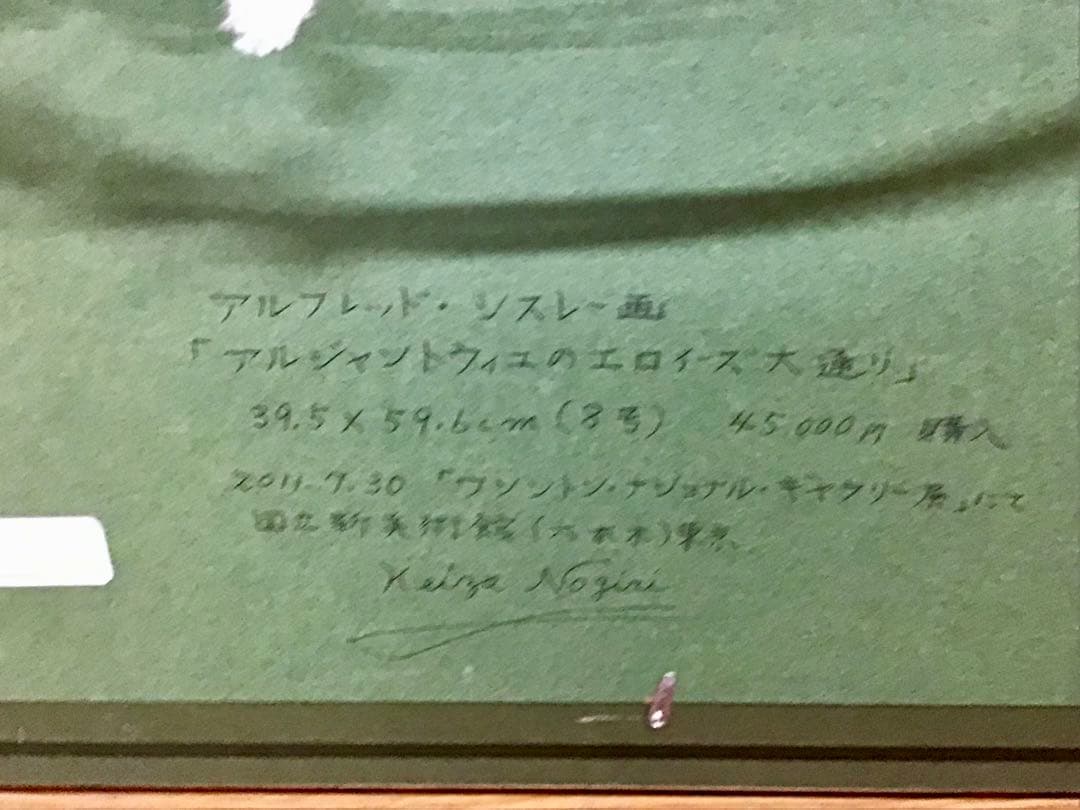 アルフレッド・シスレー画
「アルジャントゥイユのエロイーズ大通り」
39.5×59.6cm(8号) 45.000円 購入
2011.7.30「ワシントン・ナショナル・ギャラリー展」にて
国立新美術館(六本木)東京
Keizo Nogiri